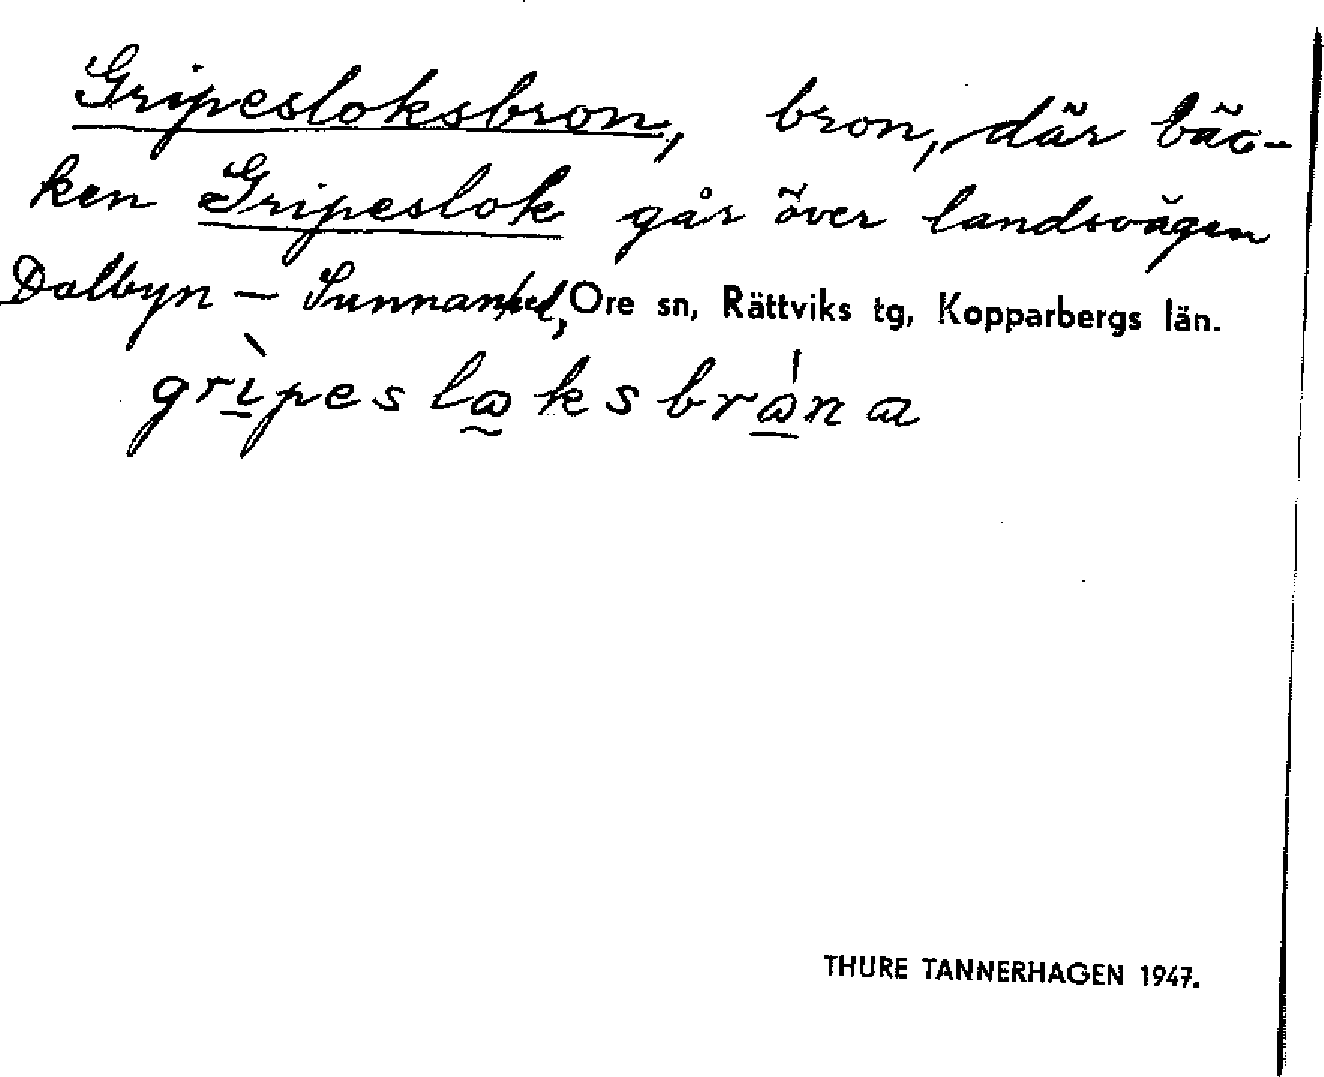 Gripesloksbron, bron, där bäc-
ken Gripeslok går över landsvägen
Dalbyn — Sunnanhed, Ore sn, Rättviks tg, Kopparbergs län.
grìpeslɷksbrɷ́na
THURE TANNERHAGEN 1947.